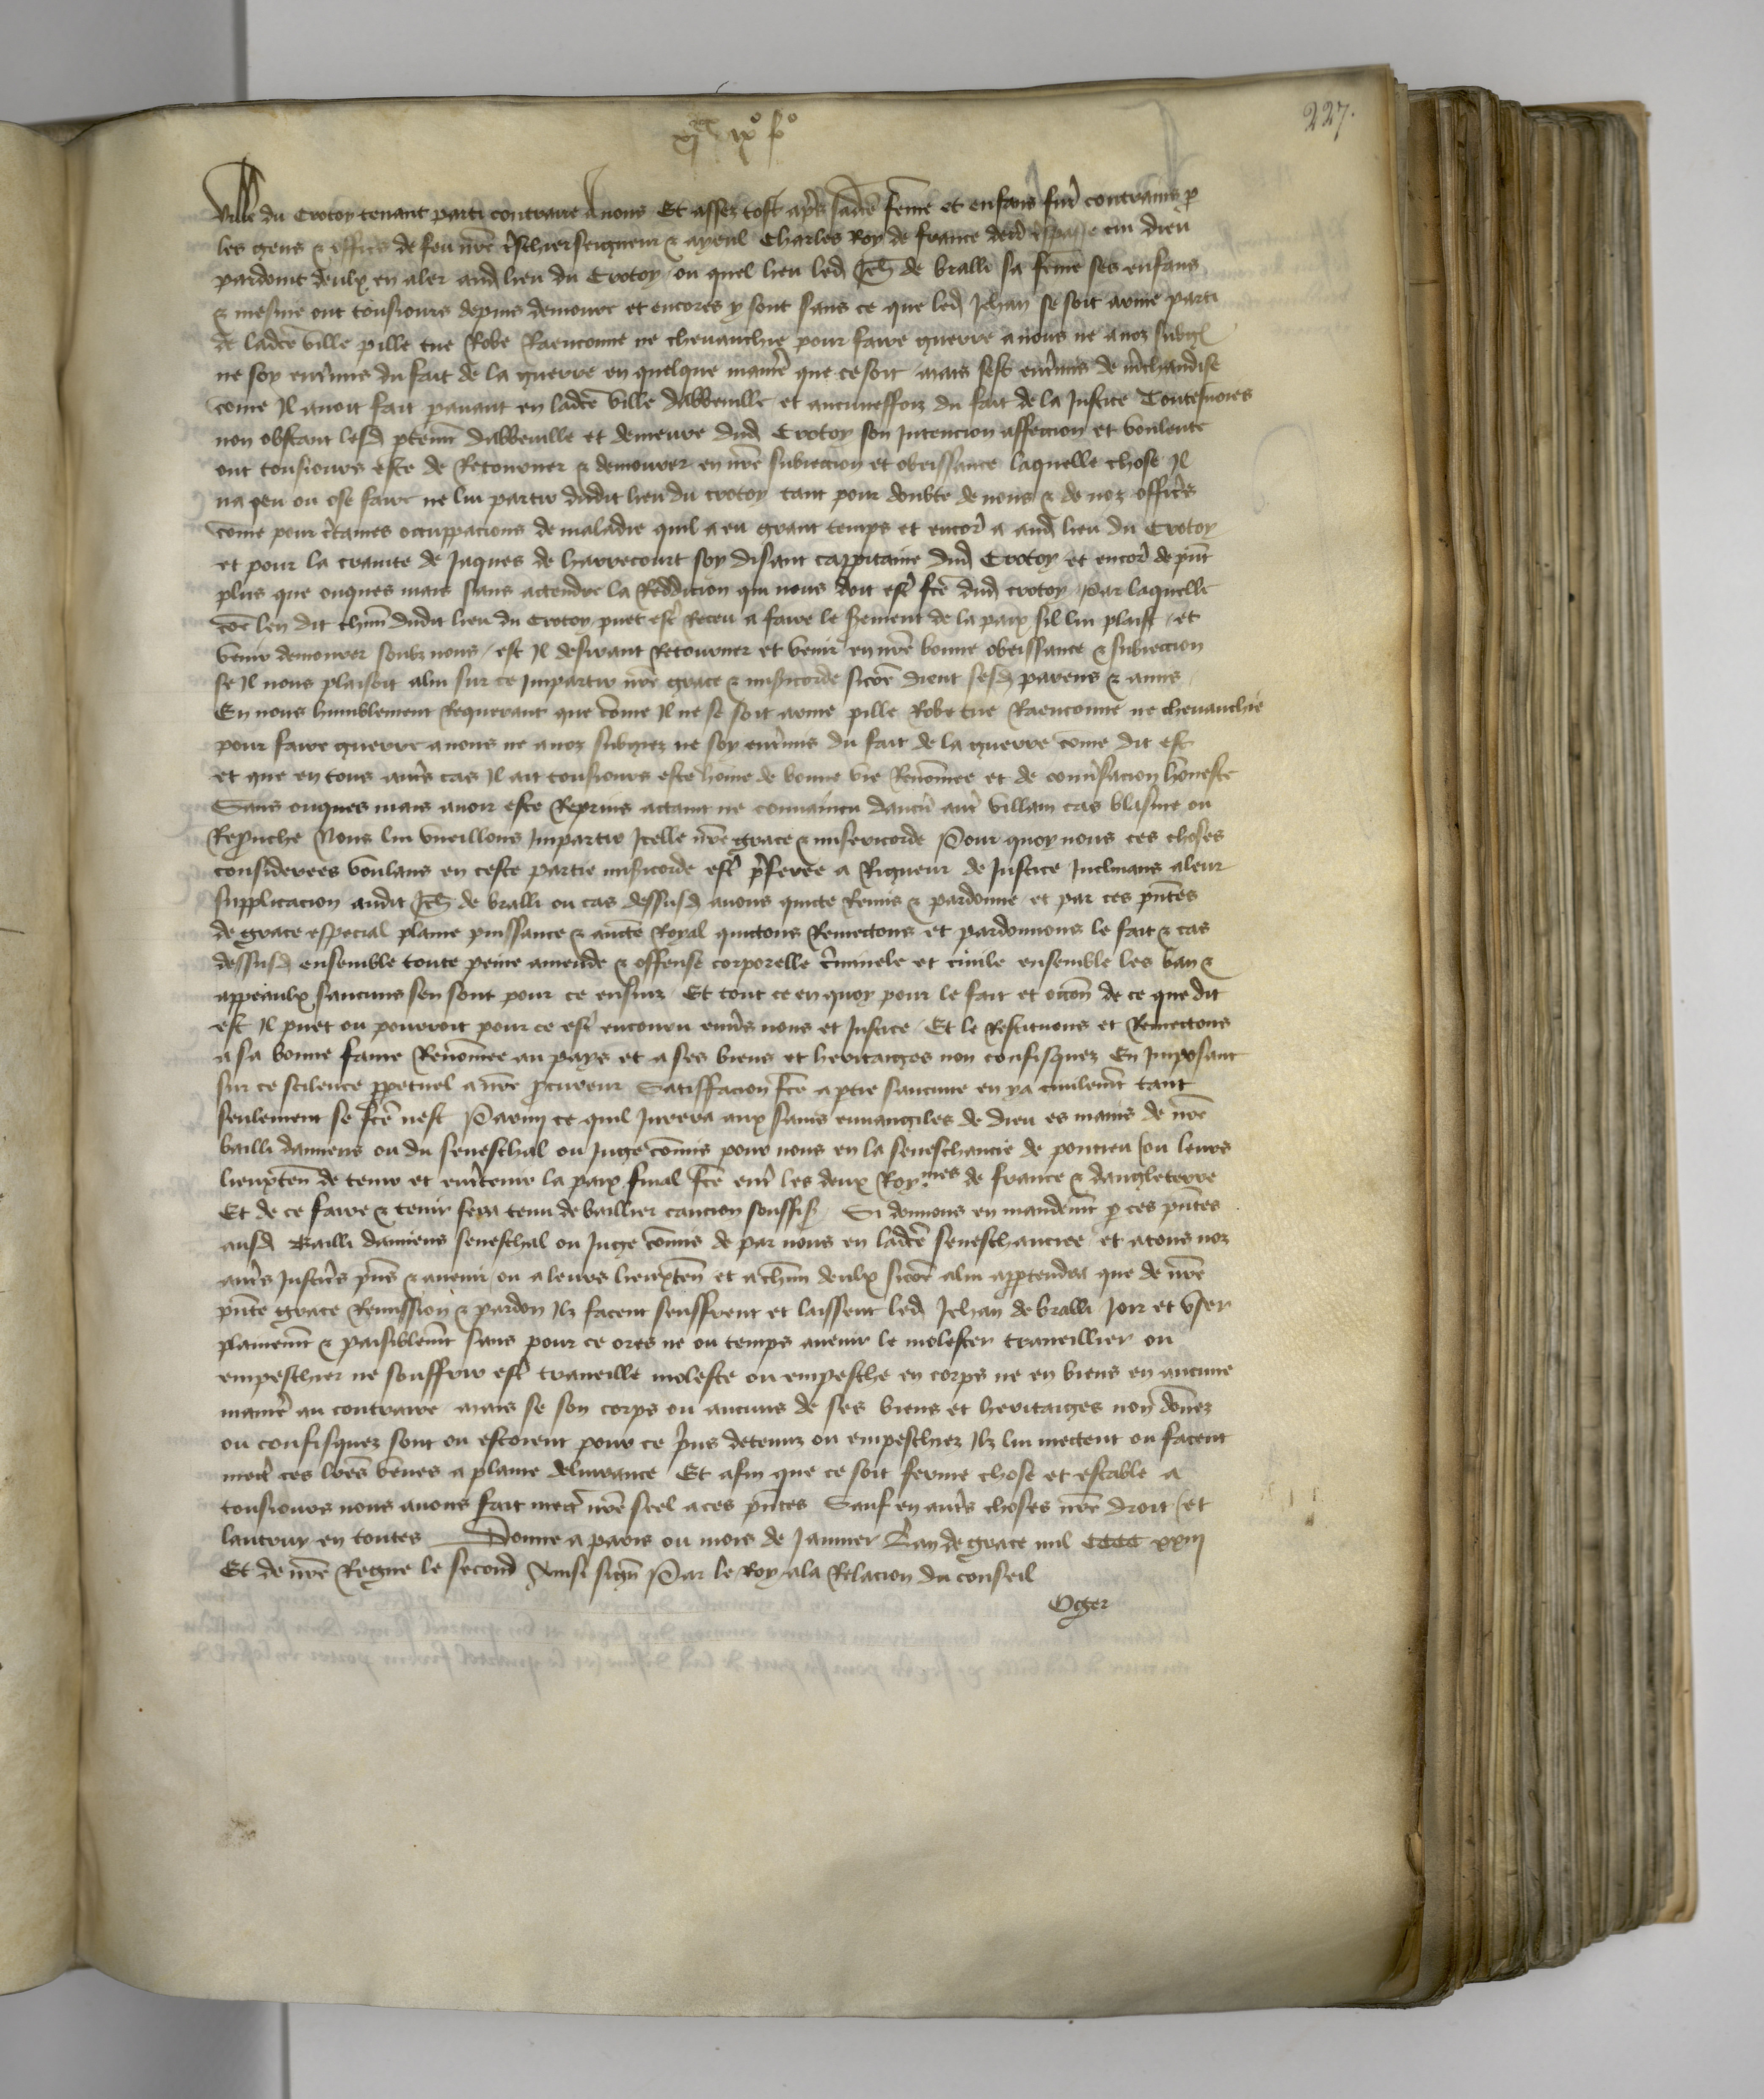 227.
xi xx ix° f°
Ville du Crotoy tenant parti contraire a nous Et assez tost apres sadce feme et enfans furt contrains p
les gens & offics de feu nre treschier seigneur & ayeul Charles Roy de france derr trespasse cui dieu
pardoint deulx en aler aud lieu du Crotoy ou quel lieu led Jeh de bralli sa feme ses enfans
& mesme ont tousiours depuis demoure et encores y sont sans ce que led Jehan se soit arme parti
de ladce ville pille tue Robe Raenconne ne cheuauchie pour faire guerre a nous ne a noz subgz
ne soy entrmis du fait de la guerre en quelque manie que ce soit mais sest entrmis de mrchandise
come Il auoit fait parauant en ladce ville dabbeuille et aucuneffoiz du fait de la Justice Toutesuoies
non obstant lesd ptemt dabbeuille et demeure dud Crotoy son Intencion affeccion et voulente
ont tousiours este de Retourner & demourer en nre subieccion et obeissance laquelle chose Il
na peu ou ose faire ne lui partir dudit lieu du crotoy tant pour doubte de nous & de noz offics
come pour ctaines occuppacions de maladie quil a eu grant temps et encor a aud lieu du Crotoy
et pour la crainte de Jaques de harrecourt soy disant cappitaine dud Crotoy et encor de pnt
plus que onques mais sans actendre la Reddicion qui nous doit estr fce dud crotoy par laquelle
coe len dit chun dudit lieu du Crotoy puet estr Receu a faire le serement de la paix sil lui plaist et
venir demourer soubz nous / est Il desirant Retourner et venir en nre bonne obeissance & subieccion
se Il nous plaisoit alui sur ce Impartir nre grace & misicorde sicoe dient sesd parens & amis
En nous humblement Requerant que come Il ne se soit arme pille Robe tue Raenconne ne cheuauchie
pour faire guerre a nous ne a noz subgiez ne soy entrmis du fait de la guerre come dit est
et que en tous autrs cas Il ait tousiours este home de bonne vie Renomee et de conusacion honneste
Sans onques mais auoir este Reprins actaint ne conuaincu daucu autr villain cas blasme ou
Repruche Nous lui vueillons Impartir Icelle nre grace & misericorde Pour quoy nous ces choses
considerees voulans en ceste partie misicorde estr pferee a Rigueur de Justice Inclinans a leur
supplicacion audit Jeh de bralli ou cas dessusd auons quicte Remis & pardonne et par ces pntes
de grace especial plaine puissance & aucte Royal quictons Remectons et pardonnons le fait & cas
dessusd ensemble toute peine amende & offense corporelle criminele et ciuile ensemble les ban &
appeaulx saucuns sen sont pour ce ensuiz Et tout ce en quoy pour le fait et occon de ce que dit
est Il puet ou pourroit pour ce estr encouru enurs nous et Justice Et le Restituons et Remectons
a sa bonne fame Renomee au pays et a ses biens et heritaiges non confisquez En Imposant
sur ce scilence ppetuel a nre pcureur Satisffacion fce a ptie saucune en y a ciuilemt tant
seulement se fce nest Parmi ce quil Jurera aux sains euuangiles de dieu es mains de nre
bailli damiens ou du seneschal ou Juge comis pour nous en la seneschaucie de pontieu ou leurs
lieuxten de tenir et entretenir la paix final fce entr les deux Roy.mes de france & dangleterre
Et de ce faire & tenir sera tenu de baillier caucion souffis Si donnons en mandemt p ces pntes
ausd Bailli damiens seneschal ou Juge comis de par nous en ladce seneschauciee et a tous noz
autrs Justics pns & auenir ou a leurs lieuxten et a chun deulx sicoe a lui apptendra que de nre
pnte grace Remission & pardon Ilz facent seuffrent et laissent led Jehan de bralli Joir et vser
plainemt & paisiblemt sans pour ce ores ne ou temps auenir le molester traueillier ou
empeschier ne souffrir estr traueille moleste ou empesche en corps ne en biens en aucune
manie au contraire mais se son corps ou aucuns de ses biens et heritaiges non donez
ou confisquez sont ou estoient pour ce prins detenuz ou empeschiez Ilz lui mectent ou facent
mectr ces lres veues a plaine deliurance Et afin que ce soit ferme chose et estable a
tousiours nous auons fait mectr nre seel a ces pntes Sauf en autrs choses nre droit et
lautruy en toutes Donne a paris ou mois de Januier Lan de grace mil CCCC xxiij
Et de nre Regne le second Ainsi sign Par le Roy a la Relacion du conseil
Oger